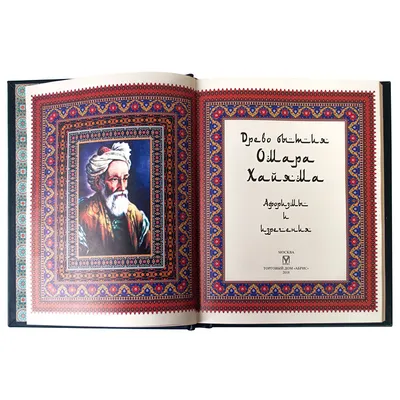 Древо бытия
Омара
Хайяма
Афоризмы
и
изречения
МОСКВА
ТОРГОВЫЙ ДОМ «АБРИС»
2018